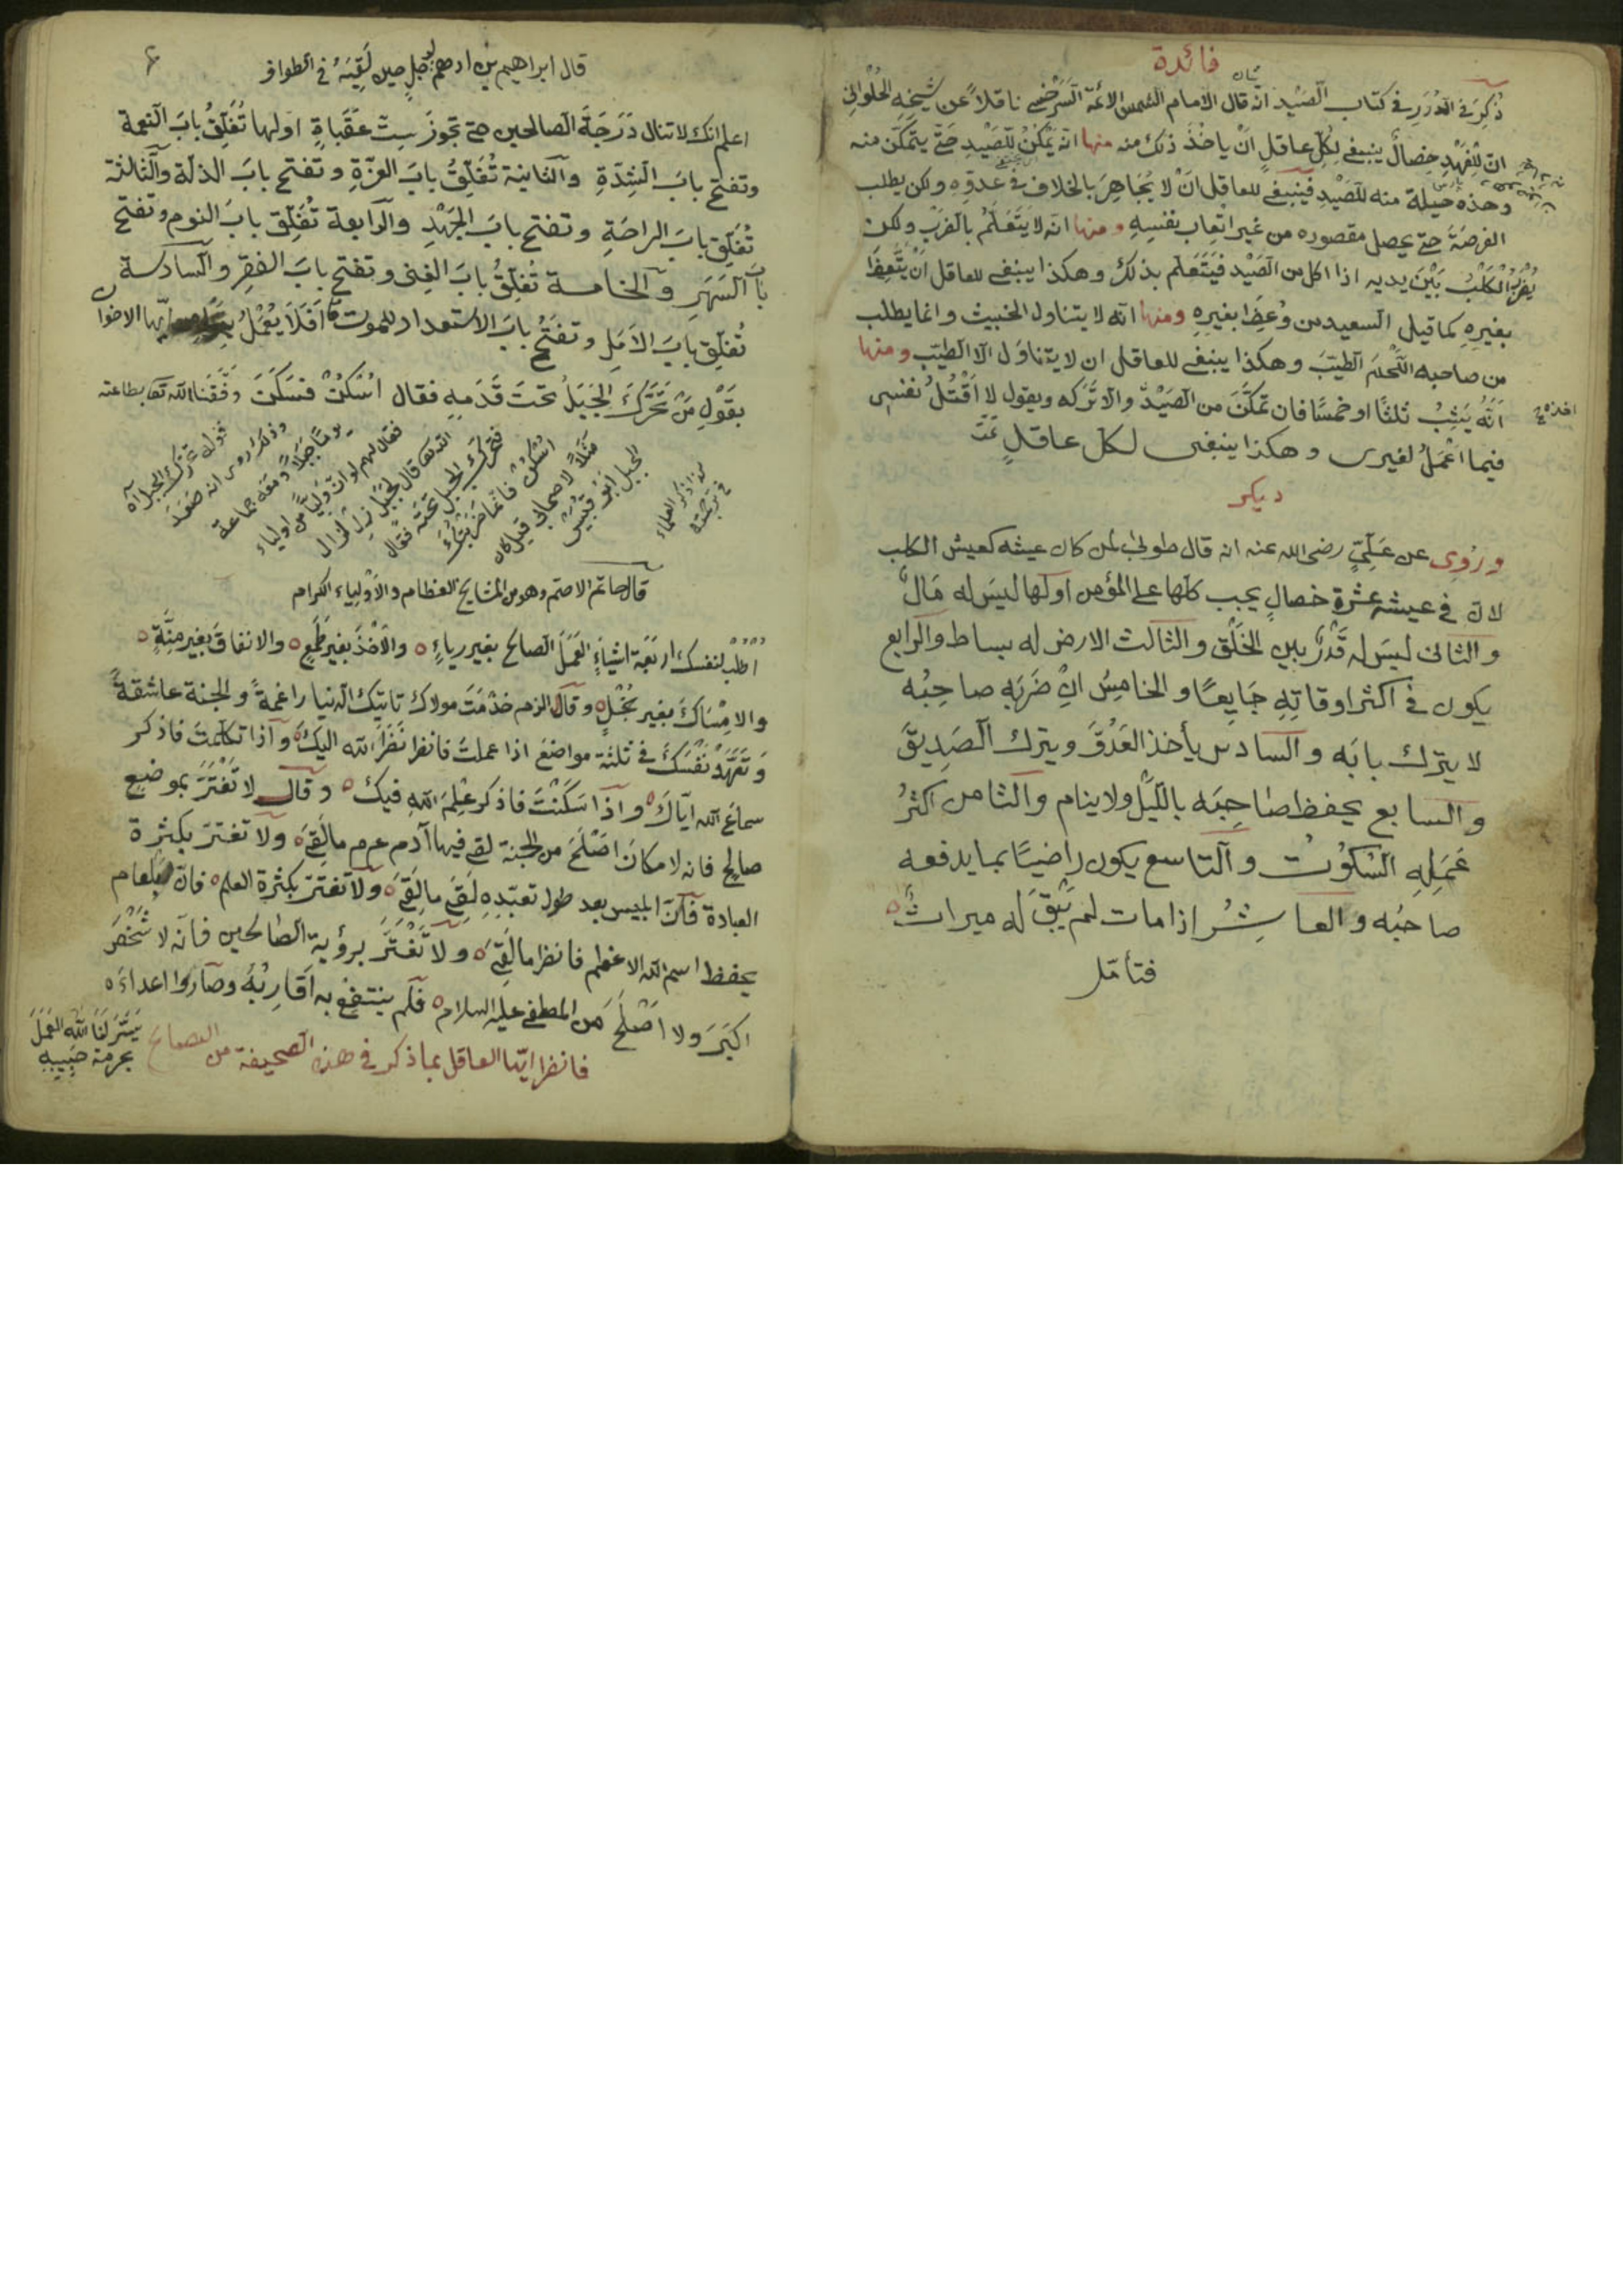 فائدة
ذُكِرَ في الدُرَرِ في كتاب الصَّيْد انه قال الامام الشمس الائمة السَرَخسي ناقلاً عن شيخه الحُلْوانِي
انّ لِلْفَهْدِ خِصالٌ ينبغي لِكُلِّ عاقلٍ اَنْ ياخُذَ ذلك منه منها انّه يَكْمُنُ لِلصَّيْدِ حَتّى يتمكّن منه
وهذه حيلة منه للصَيْدِ فينبغي للعاقل انْ لا يُجاهِرَ بالخلاف في عدوّه ولكن يطلب
الفرصَةَ حتى يحصل مقصوده من غير اتعاب بنفسِهِ ومنها انّه لا يَتَعَلَّمُ بالضَرْب ولكن
يُضْرَبُ الكَلْبُ بَيْنَ يديه اذا اكل من الصَّيْد فَيَتَعَلّم بذلك وهكذا ينبغي للعاقل اَنْ يَتَّعِظَ
بغيرِهِ كما قيل السعيد من وُعِظَ بغيرِهِ ومنها انّه لا يتناول الخبيث وانما يطلب
من صاحبه اللَّحْمَ الطيّبَ وهكذا ينبغي للعاقل ان لا يتناوَل الّا الطيّب ومنها
اَنَّهُ يَثِبُ ثلثًا او خمسًا فان تمكَّنَ من الصَيْدِ والّا تَرَكه ويقول لا اَقْتُلُ نفسى
فيما اَعْمَلُ لغيرى وهكذا ينبغى لكل عاقلٍ تمت
ديكر
ورُوِى عن عَلِيٍّ رضى الله عنه انه قال طوبى لمن كان عيشه كعيش الكلب
لانّ في عيشه عشرة خصالٍ يجب كلّها على المؤمن اولها ليسَ له مَالٌ
والثانى ليسَ له قَدْرٌ بين الخَلْق والثالث الارض له بساط والرابع
يكون في اكثر اوقاتِهِ جَايِعًا والخامِسُ انْ ضَرَبَه صاحِبُه
لا يترك بابَه والسادس يأخذ العَدُوَّ ويترك الصَدِيقَ
والسابع يحفظ صاحِبَه باللّيْلِ ولا ينام والثامن اكثرُ
عَمَلِهِ السُكوُتْ والتاسع يكون راضيًا بما يدفعه
صاحبُه والعاشِرُ اذا مات لم يَبْقَ له ميراث
فتأمّل
قال ابراهيم بن ادهم لرجلٍ حين لَقِيَهُ في الطواف
اعلم انّك لا تنال دَرَجَةَ الصالحين حتى تجوزَ سِتّ عقَباةٍ اولها تُغَلِّقُ بابَ النعمة
وتفتح بابَ الشِدّةِ والثانية تُغَلِّقُ بابَ العزّةِ وتفتح بابَ الذلّة والثالثة
تُغَلِّق بابَ الراحَةِ وتفتح بابَ الجَهْدِ والرابعة تُغَلِّق بابَ النوم وتفتح
بابَ السَهَرِ والخامسة تُغَلِّقُ بابَ الغِنى وتفتح بابَ الفقرِ والسادسة
تُغَلِّق بابَ الاَمَلِ وتفتَحُ بابَ الاستعداد للموت اَفَلَا يَعْمَلُ ايّها الاخوان
بقَوْلِ مَنْ تَحَرَّكَ الجَبَلُ تحتَ قَدَمِهِ فقال اُسْكُنْ فسَكَنَ وَفَّقَنَا الله تعا بطاعته
قوله تحرّك الجبل آه
وذلك روى انه صَعَدَ
يومًا جبَلاً ومعه جماعة
فقال لهم لو انّ وَلِيًّا من اولياء
الله تعا قال لجَبَلٍ زل لزال
فتحرّك الجبل تحته فقال
اُسْكُنْ فانّما ضَرَبْتُكَ
مَثَلاً لاصحابى قيل كان
الجبل ابو قُبَيْسٍ
كذا ذكر العلماء
في ترجمته
قال حاتم الاصم وهو من المشايخ العظام والأوْلِياء الكرام
اُطْلُبْ لنفسك اربَعَة اشياءٍ العَمَلَ الصالح بغير رياءٍ والأخْذَ بغير طَمَعٍ والانفاقَ بغير مِنَّةٍ
والامْسَاكَ بغير بُخْلٍ وقال الزم خدْمَتَ مولاك تاتيك الدنيا راغمةً والجنة عاشقةً
وَتَعَهَّدْ نَفْسَكَ في ثلثة مواضعَ اذا عملتَ فانظر نَظَرَ الله اليكَ واذا تكلّمتَ فاذكر
سماعَ الله ايّاكَ واذا سَكَنْتَ فاذكر عِلْمَ الله فيك وقال لا تَغْتَرَّ بموضعٍ
صالحٍ فانه لا مكانَ اَصْلَحَ من الجنة لقى فيها آدم عم ما لَقِىَ ولا تغترّ بكثرة
العبادة فانّ ابليس بعد طول تعبّدِهِ لَقِىَ ما لَقِىَ ولا تغترّ بكثرة العلم فانّ بلعام
يحفظ اسم الله الاعظم فانظر ما لَقِىَ ولا تَغْتَرَّ برؤية الصالحين فانّه لا شَخْصَ
اكبَرَ ولا اَصْلَحَ من المصطفى عليه السلام فلم ينتفع به اَقَارِبُهُ وصارُوا اعداءه
فانظر ايّها العاقل بما ذكر في هذه الصحيفة من النصائح يَسَّرَ لَنَا الله العَمَلَ
بحرمة حَبِيبِهِ